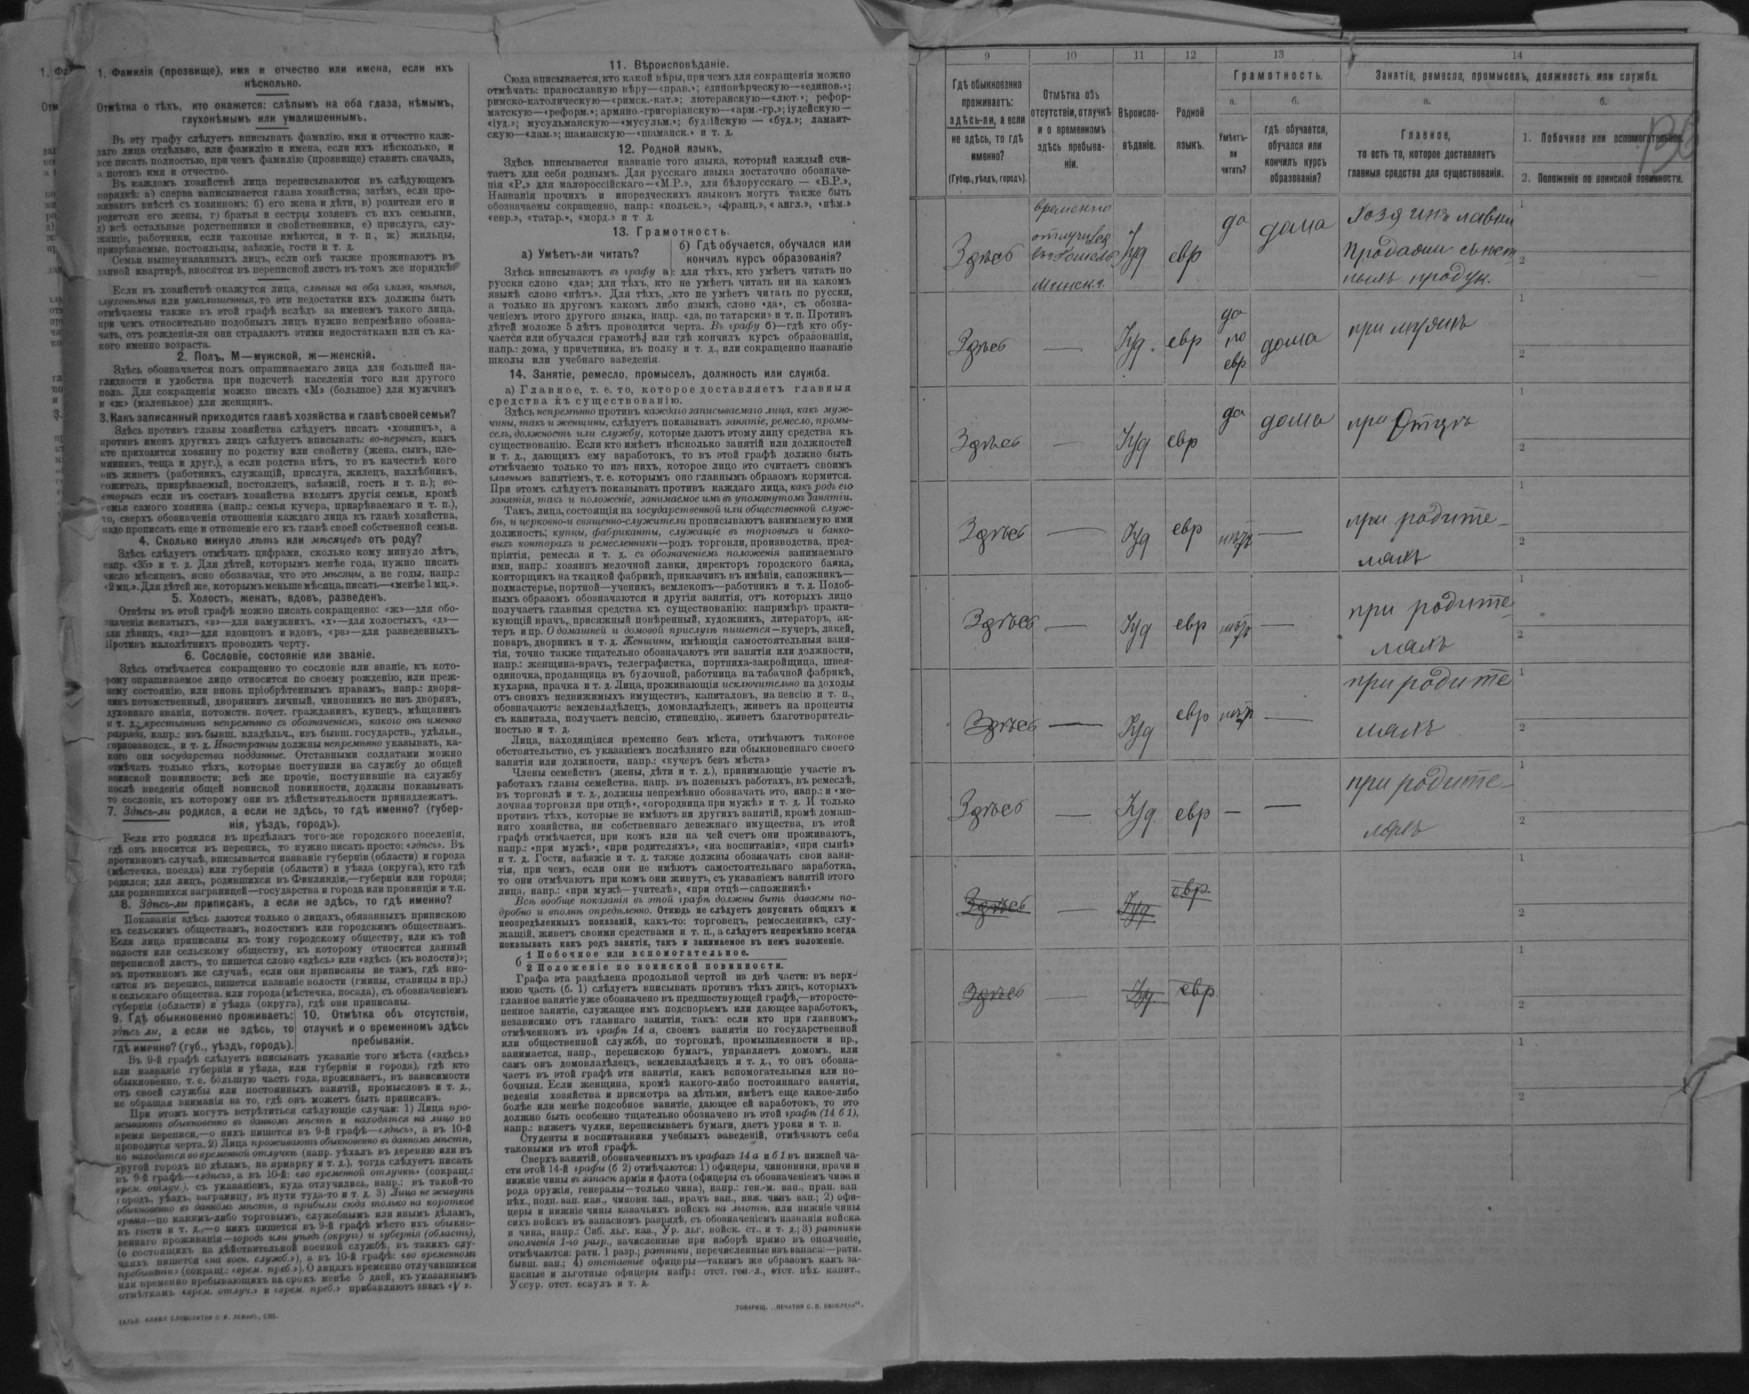 1. Фамилія (прозвище), имя и отчество или имена, если ихъ
нѣсколько.
Отмѣтка о тѣхъ, кто окажется: слѣпымъ на оба глаза, нѣмымъ,
глухонѣмымъ или умалишеннымъ.
Въ эту графу слѣдуетъ вписывать фамилію, имя и отчество каж-
даго лица отдѣльно, или фамилію и имена, если ихъ нѣсколько, и
все писать полностью, при чемъ фамилію (прозвище) ставить сначала,
а потомъ имя и отчество.
Въ каждомъ хозяйствѣ лица переписываются въ слѣдующемъ
порядкѣ: а) сперва записывается глава хозяйства; затѣмъ, если про-
живаютъ вмѣстѣ съ хозяиномъ: б) его жена и дѣти, в) родители его и
родители его жены, г) братья и сестры хозяевъ съ ихъ семьями,
д) всѣ остальные родственники и свойственники, е) прислуга, слу-
жащіе, работники, если таковые имѣются, и т. п., ж) жильцы,
призрѣваемые, постояльцы, заѣзжіе, гости и т. д.
Семьи вышеуказанныхъ лицъ, если онѣ также проживаютъ въ
данной квартирѣ, вносятся въ переписной листъ въ томъ же порядкѣ.
Если въ хозяйствѣ окажутся лица, слѣпыя на оба глаза, нѣмыя,
глухонѣмыя или умалишенныя, то эти недостатки ихъ должны быть
отмѣчаемы также въ этой графѣ вслѣдъ за именемъ такого лица,
при чемъ относительно подобныхъ лицъ нужно непремѣнно обозна-
чать, отъ рожденія-ли они страдаютъ этими недостатками или съ ка-
кого именно возраста.
2. Полъ, М—мужской, ж—женскій.
Здѣсь обозначается полъ опрашиваемаго лица для большей на-
глядности и удобства при подсчетѣ населенія того или другого
пола. Для сокращенія можно писать «М» (большое) для мужчинъ
и «ж» (маленькое) для женщинъ.
3. Какъ записанный приходится главѣ хозяйства и главѣ своей семьи?
Здѣсь противъ главы хозяйства слѣдуетъ писать «хозяинъ», а
противъ именъ другихъ лицъ слѣдуетъ вписывать: во-первыхъ, какъ
кто приходится хозяину по родству или свойству (жена, сынъ, пле-
мянникъ, теща и друг.), а если родства нѣтъ, то въ качествѣ кого
онъ живетъ (работникъ, служащій, прислуга, жилецъ, нахлѣбникъ,
сожитель, призрѣваемый, постоялецъ, заѣзжій, гость и т. п.); во-
вторыхъ если въ составъ хозяйства входятъ другія семьи, кромѣ
семьи самого хозяина (напр.: семья кучера, призрѣваемаго и т. п.),
то, сверхъ обозначенія отношенія каждаго лица къ главѣ хозяйства,
надо прописать еще и отношеніе его къ главѣ своей собственной семьи.
4. Сколько минуло лѣтъ или мѣсяцевъ отъ роду?
Здѣсь слѣдуетъ отмѣчать цифрами, сколько кому минуло лѣтъ,
напр. «35» и т. д. Для дѣтей, которымъ менѣе года, нужно писать
число мѣсяцевъ, ясно обозначая, что это мѣсяцы, а не годы, напр.:
«2 мц.». Для дѣтей же, которымъ меньше мѣсяца, писать—«менѣе 1 мц.».
5. Холостъ, женатъ, вдовъ, разведенъ.
Отвѣты въ этой графѣ можно писать сокращенно: «ж»—для обо-
значенія женатыхъ, «з»—для замужнихъ, «х»—для холостыхъ, «д»—
для дѣвицъ, «вд»—для вдовцовъ и вдовъ, «рв»—для разведенныхъ.
Противъ малолѣтнихъ проводить черту.
6. Сословіе, состояніе или званіе.
Здѣсь отмѣчается сокращенно то сословіе или званіе, къ кото-
рому опрашиваемое лицо относится по своему рожденію, или преж-
нему состоянію, или вновь пріобрѣтеннымъ правамъ, напр.: дворя-
нинъ потомственный, дворянинъ личный, чиновникъ не изъ дворянъ,
духовнаго званія, потомств. почет. гражданинъ, купецъ, мѣщанинъ
и т. д., крестьянинъ непремѣнно съ обозначеніемъ, какого онъ именно
разряда, напр.: изъ бывш. владѣльч., изъ бывш. государств., удѣльн.,
горнозаводск., и т. д. Иностранцы должны непремѣнно указывать, ка-
кого они государства подданные. Отставными солдатами можно
отмѣчать только тѣхъ, которые поступили на службу до общей
воинской повинности; всѣ же прочіе, поступившіе на службу
послѣ введенія общей воинской повинности, должны показывать
то сословіе, къ которому они въ дѣйствительности принадлежатъ.
7. Здѣсь-ли родился, а если не здѣсь, то гдѣ именно? (губер-
нія, уѣздъ, городъ).
Если кто родился въ предѣлахъ того-же городского поселенія,
гдѣ онъ вносится въ перепись, то нужно писать просто: «здѣсь». Въ
противномъ случаѣ, вписывается названіе губерніи (области) и города
(мѣстечка, посада) или губерніи (области) и уѣзда (округа), кто гдѣ
родился; для лицъ, родившихся въ Финляндіи,—губернія или города;
для родившихся заграницей—государства и города или провинціи и т.п.
8. Здѣсь-ли приписанъ, а если не здѣсь, то гдѣ именно?
Показанія здѣсь даются только о лицахъ, обязанныхъ припискою
къ сельскимъ обществамъ, волостямъ или городскимъ обществамъ.
Если лица приписаны къ тому городскому обществу, или къ той
волости или сельскому обществу, къ которому относится данный
переписной листъ, то пишется слово «здѣсь» или «здѣсь (къ волости)»;
въ противномъ же случаѣ, если они приписаны не тамъ, гдѣ вно-
сятся въ перепись, пишется названіе волости (гмины, станицы и пр.)
и сельскаго общества, или города (мѣстечка, посада), съ обозначеніемъ
губерніи (области) и уѣзда (округа), гдѣ они приписаны.
9. Гдѣ обыкновенно проживаетъ:
здѣсь ли, а если не здѣсь, то
гдѣ именно? (губ., уѣздъ, городъ).
10. Отмѣтка объ отсутствіи,
отлучкѣ и о временномъ здѣсь
пребываніи.
Въ 9-й графѣ слѣдуетъ вписывать указаніе того мѣста («здѣсь»
или названіе губерніи и уѣзда, или губерніи и города), гдѣ кто
обыкновенно, т. е. бо́льшую часть года, проживаетъ, въ зависимости
отъ своей службы или постоянныхъ занятій, промысловъ и т. д.,
не обращая вниманія на то, гдѣ онъ можетъ быть приписанъ.
При этомъ могутъ встрѣтиться слѣдующіе случаи: 1) Лица про-
живаютъ обыкновенно въ данномъ мѣстѣ и находятся на лицо во
время переписи,—о нихъ пишется въ 9-й графѣ—«здѣсь», а въ 10-й
проводится черта. 2) Лица проживаютъ обыкновенно въ данномъ мѣстѣ,
но находятся во временной отлучкѣ (напр. уѣхалъ въ деревню или въ
другой городъ по дѣламъ, на ярмарку и т. д.), тогда слѣдуетъ писать
въ 9-й графѣ—«здѣсь», а въ 10-й: «во временной отлучкѣ» (сокращ.:
врем. отлуч.), съ указаніемъ, куда отлучились, напр.: въ такой-то
городъ, уѣздъ, заграницу, въ пути туда-то и т. д. 3) Лица не живутъ
обыкновенно въ данномъ мѣстѣ, а прибыли сюда только на короткое
время—по какимъ-либо торговымъ, служебнымъ или инымъ дѣламъ,
въ гости и т. д.,—о нихъ пишется въ 9-й графѣ мѣсто ихъ обыкно-
веннаго проживанія—городъ или уѣздъ (округъ) и губернія (область),
(о состоящихъ на дѣйствительной военной службѣ, въ такихъ слу-
чаяхъ пишется «на воен. службѣ»), а въ 10-й графѣ: «во временномъ
пребываніи» (сокращ.: «врем. преб.»). О лицахъ временно отлучившихся
или временно пребывающихъ на срокъ менѣе 5 дней, къ указаннымъ
отмѣткамъ «врем. отлуч.» и «врем. преб.» прибавляютъ знакъ «V».
11. Вѣроисповѣданіе.
Сюда вписывается, кто какой вѣры, при чемъ для сокращенія можно
отмѣчать: православную вѣру—«прав.»; единовѣрческую—«единов.»;
римско-католическую—«римск.-кат.»; лютеранскую—«лют.»; рефор-
матскую—«реформ.»; армяно.-григоріанскую—«арм.-гр.»; іудейскую—
«іуд.»; мусульманскую—«мусульм.»; буддійскую — «буд.»; ламаит-
скую—«лам.»; шаманскую—«шаманск.» и т. д.
12. Родной языкъ.
Здѣсь вписывается названіе того языка, который каждый счи-
таетъ для себя роднымъ. Для русскаго языка достаточно обозначе-
нія «Р.» для малороссійскаго—«М.Р.», для бѣлорусскаго — «Б.Р.»,
Названія прочихъ и инородческихъ языковъ могутъ также быть
обозначаемы сокращенно, напр.: «польск.», «франц.», «англ.», «нѣм.»
«евр.», «татар.», «морд.» и т. д.
13. Грамотность.
а) Умѣетъ-ли читать?
б) Гдѣ обучается, обучался или
кончилъ курсъ образованія?
Здѣсь вписываютъ въ графу а): для тѣхъ, кто умѣетъ читать по
русски слово «да»; для тѣхъ, кто не умѣетъ читать ни на какомъ
языкѣ слово «нѣтъ». Для тѣхъ, кто не умѣетъ читать по русски,
а только на другомъ какомъ либо языкѣ, слово «да», съ обозна-
ченіемъ этого другого языка, напр. «да, по татарски» и т. п. Противъ
дѣтей моложе 5 лѣтъ проводится черта. Въ графу б)—гдѣ кто обу-
чается или обучался грамотѣ, или гдѣ кончилъ курсъ образованія,
напр.: дома, у причетника, въ полку и т. д., или сокращенно названіе
школы или учебнаго заведенія.
14. Занятіе, ремесло, промыселъ, должность или служба.
а) Главное, т. е. то, которое доставляетъ главныя
средства къ существованію.
Здѣсь непремѣнно противъ каждаго записываемаго лица, какъ муж-
чины, такъ и женщины, слѣдуетъ показывать занятіе, ремесло, промы-
селъ, должность или службу, которые даютъ этому лицу средства къ
существованію. Если кто имѣетъ нѣсколько занятій или должностей
и т. д., дающихъ ему заработокъ, то въ этой графѣ должно быть
отмѣчаемо только то изъ нихъ, которое лицо это считаетъ своимъ
главнымъ занятіемъ, т. е. которымъ оно главнымъ образомъ кормится.
При этомъ слѣдуетъ показывать противъ каждаго лица, какъ родъ его
занятія, такъ и положеніе, занимаемое имъ въ упомянутомъ занятіи.
Такъ, лица, состоящія на государственной или общественной служ-
бѣ, и церковно-и священно-служители прописываютъ занимаемую ими
должность; купцы, фабриканты, служащіе въ торговыхъ и банко-
выхъ конторахъ и ремесленники—родъ торговли, производства, пред-
пріятія, ремесла и т. д. съ обозначеніемъ положенія занимаемаго
ими, напр.: хозяинъ мелочной лавки, директоръ городского банка,
конторщикъ на ткацкой фабрикѣ, приказчикъ въ имѣніи, сапожникъ—
подмастерье, портной—ученикъ, землекопъ—работникъ и т. д. Подоб-
нымъ образомъ обозначаются и другія занятія, отъ которыхъ лицо
получаетъ главныя средства къ существованію: напримѣръ практи-
кующій врачъ, присяжный повѣренный, художникъ, литераторъ, ак-
теръ и пр. О домашней и домовой прислугѣ пишется—кучеръ, лакей,
поваръ, дворникъ и т. д. Женщины, имѣющія самостоятельныя заня-
тія, точно также тщательно обозначаютъ эти занятія или должности,
напр.: женщина-врачъ, телеграфистка, портниха-закройщица, швея-
одиночка, продавщица въ булочной, работница на табачной фабрикѣ,
кухарка, прачка и т. д. Лица, проживающія исключительно на доходы
отъ своихъ недвижимыхъ имуществъ, капиталовъ, на пенсію и т. п.,
обозначаютъ: землевладѣлецъ, домовладѣлецъ, живетъ на проценты
съ капитала, получаетъ пенсію, стипендію, живетъ благотворитель-
ностью и т. д.
Лица, находящіяся временно безъ мѣста, отмѣчаютъ таковое
обстоятельство, съ указаніемъ послѣдняго или обыкновеннаго своего
занятія или должности, напр.: «кучеръ безъ мѣста»
Члены семействъ (жены, дѣти и т. д.), принимающіе участіе въ
работахъ главы семейства, напр. въ полевыхъ работахъ, въ ремеслѣ,
въ торговлѣ и т. д., должны непремѣнно обозначать это, напр.: и «ме-
лочная торговля при отцѣ», «огородница при мужѣ» и т. д. И только
противъ тѣхъ, которые не имѣютъ ни другихъ занятій, кромѣ домаш-
няго хозяйства, ни собственнаго денежнаго имущества, въ этой
графѣ отмѣчается, при комъ или на чей счетъ они проживаютъ,
напр.: «при мужѣ», «при родителяхъ», «на воспитаніи», «при сынѣ»
и т. д. Гости, заѣзжіе и т. д. также должны обозначать свои заня-
тія, при чемъ, если они не имѣютъ самостоятельнаго заработка,
то они отмѣчаютъ при комъ они живутъ, съ указаніемъ занятій этого
лица, напр.: «при мужѣ—учителѣ», «при отцѣ—сапожникѣ»
Всѣ вообще показанія въ этой графѣ должны быть даваемы по-
дробно и вполнѣ опредѣленно. Отнюдь не слѣдуетъ допускать общихъ и
неопредѣленныхъ показаній, какъ-то: торговецъ, ремесленникъ, слу-
жащій, живетъ своими средствами и т. п., а слѣдуетъ непремѣнно всегда
показывать какъ родъ занятія, такъ и занимаемое въ немъ положеніе.
б 1 Побочное или вспомогательное.
2 Положеніе по воинской повинности.
Графа эта раздѣлена продольной чертой на двѣ части: въ верх-
нюю часть (б. 1) слѣдуетъ вписывать противъ тѣхъ лицъ, которыхъ
главное занятіе уже обозначено въ предшествующей графѣ,—второсте-
пенное занятіе, служащее имъ подспорьемъ или дающее заработокъ,
независимо отъ главнаго занятія, такъ: если кто при главномъ,
отмѣченномъ въ графѣ 14 а, своемъ занятіи по государственной
или общественной службѣ, по торговлѣ, промышленности и пр.,
занимается, напр., перепискою бумагъ, управляетъ домомъ, или
самъ онъ домовладѣлецъ, землевладѣлецъ и т. д., то онъ обозна-
чаетъ въ этой графѣ эти занятія, какъ вспомогательныя или по-
бочныя. Если женщина, кромѣ какого-либо постояннаго занятія,
веденія хозяйства и присмотра за дѣтьми, имѣетъ еще какое-либо
болѣе или менѣе подсобное занятіе, дающее ей заработокъ, то это
должно быть особенно тщательно обозначено въ этой графѣ (14 б 1),
напр.: вяжетъ чулки, переписываетъ бумаги, даетъ уроки и т. п.
Студенты и воспитанники учебныхъ заведеній, отмѣчаютъ себя
таковыми въ этой графѣ.
Сверхъ занятій, обозначенныхъ въ графахъ 14 а и б 1 въ нижней ча-
сти этой 14-й графы (б 2) отмѣчаются: 1) офицеры, чиновники, врачи и
нижніе чины въ запасѣ арміи и флота (офицеры съ обозначеніемъ чина и
рода оружія, генералы—только чина), напр.: ген.-м. зап., прап. зап.
пѣх., подп. зап. кав., чиновн. зап., врачъ зап., ниж. чинъ зап.; 2) офи-
церы и нижніе чины казачьихъ войскъ на льготѣ, или нижніе чины
сихъ войскъ въ запасномъ разрядѣ, съ обозначеніемъ названія войска
и чина, напр.: Сиб. льг. каз., Ур. льг. войск. ст., и т. д.; 3) ратники
ополченія 1-го разр., зачисленные при наборѣ прямо въ ополченіе,
отмѣчаются: ратн. 1 разр.; ратники, перечисленные изъ запаса:—ратн.
бывш. зап.; 4) отставные офицеры—такимъ же образомъ какъ за-
пасные и льготные офицеры напр.: отст. ген.-л., отст. пѣх. капит.,
Уссур. отст. есаулъ и т. д.
9
10
11
12
13
14
Гдѣ обыкновенно
проживаетъ:
здѣсь-ли, а если
не здѣсь, то гдѣ
именно?
(Губер., уѣздъ, городъ).
Отмѣтка объ
отсутствіи, отлучкѣ
и о временномъ
здѣсь пребыва-
ніи.
Вѣроиспо-
вѣданіе.
Родной
языкъ.
Грамотность.
а.
Умѣетъ-
ли
читать?
б.
гдѣ обучается,
обучался или
кончилъ курсъ
образованія?
Занятіе, ремесло, промыселъ, должность или служба.
а.
Главное,
то есть то, которое доставляетъ
главныя средства для существованія.
б.
1. Побочное или вспомогательное.
2. Положеніе по воинской повинности.
временно
Здѣсь
Іуд
евр
да
дома
Хозяинъ лавки
Продажи съѣст
1
2
Здѣсь — Іуд. евр
да
по
евр
дома
при мужѣ
1
2
Здѣсь — Іуд евр да дома при Отцѣ
1
2
Здѣсь — Іуд евр нѣтъ — при родите-
ляхъ
1
2
Здѣсь — Іуд евр нѣтъ — при родите
ляхъ
1
2
Здѣсь — Іуд евр нѣтъ — при родите
ляхъ
1
2
Здѣсь — Іуд евр — — при родите-
ляхъ
1
2
Здѣсь — Іуд евр
1
2
Здѣсь — Іуд. евр
1
2
1
2